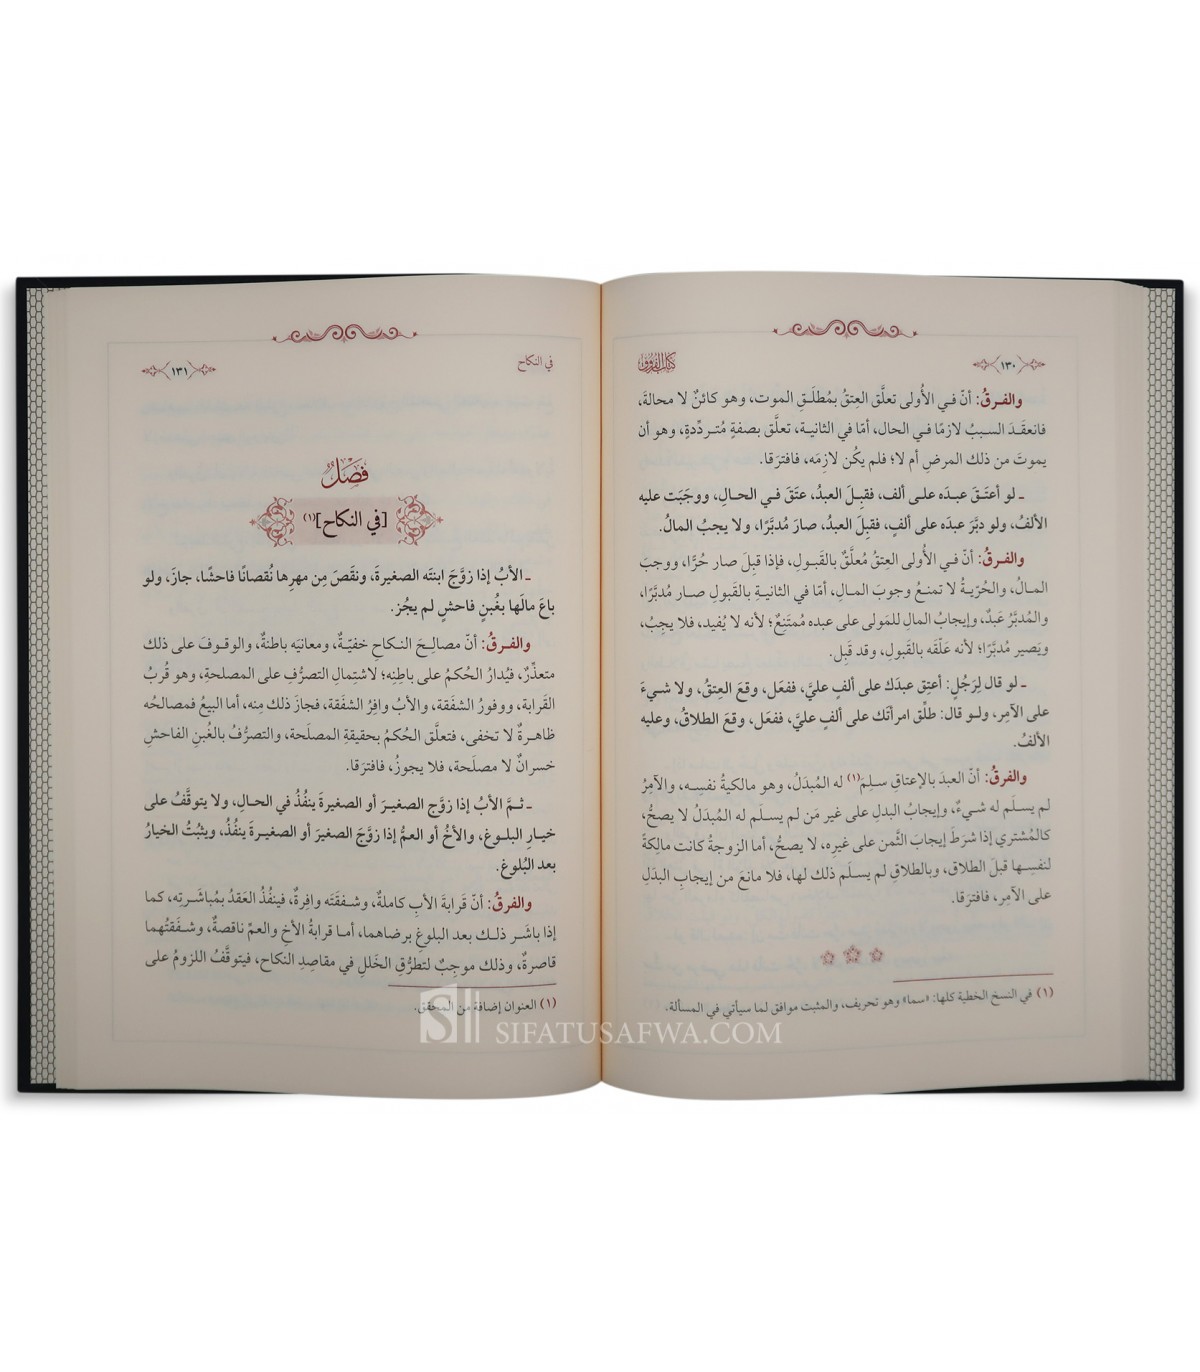 ١٣٠
كتاب الفروق
والفرقُ: أنّ في الأُولى تعلَّق العِتقُ بمُطلَقِ الموت، وهو كائنٌ لا محالةَ،
فانعقَدَ السببُ لازمًا في الحال، أمّا في الثانية، تعلَّق بصفةٍ مُتردِّدةٍ، وهو أن
يموتَ من ذلك المرضِ أم لا؛ فلم يكُن لازِمَه، فافترَقا.
ـ لو أعتَقَ عبدَه على ألف، فقبِلَ العبدُ، عتَقَ في الحالِ، ووجَبَت عليه
الألفُ، ولو دبَّرَ عبدَه على ألفٍ، فقبِلَ العبدُ، صارَ مُدبَّرًا، ولا يجبُ المالُ.
والفرقُ: أنّ في الأُولى العِتقُ مُعلَّقٌ بالقَبولِ، فإذا قبِلَ صار حُرًّا، ووجبَ
المالُ، والحُرّيةُ لا تمنعُ وجوبَ المالِ، أمّا في الثانيةِ بالقَبولِ صار مُدبَّرًا،
والمُدبَّرُ عَبدٌ، وإيجابُ المالِ للمَولى على عبده مُمتَنِعٌ؛ لأنه لا يُفيد، فلا يجِبُ،
ويَصير مُدبَّرًا؛ لأنه عَلَّقَه بالقَبولِ، وقد قَبِل.
ـ لو قال لِرَجُلٍ: أعتِق عبدَك على ألفٍ عليَّ، ففعَل، وقعَ العِتقُ، ولا شيءَ
على الآمِر، ولو قال: طلِّق امرأتَك على ألفٍ عليَّ، ففعَل، وقعَ الطلاقُ، وعليه
الألفُ.
والفرقُ: أنّ العبدَ بالإعتاقِ سلِمَ(١) له المُبدَلُ، وهو مالكيةُ نفسِه، والآمِرُ
لم يسلَم له شيءٌ، وإيجابُ البدلِ على غير مَن لم يسلَم له المُبدَلُ لا يصحُّ،
كالمُشتري إذا شرَطَ إيجابَ الثَّمن على غيرِه، لا يصحُّ، أما الزوجةُ كانت مالِكةً
لنفسِها قبلَ الطلاق، وبالطلاقِ لم يسلَم ذلك لها، فلا مانعَ من إيجابِ البدَلِ
على الآمِر، فافترَقا.
(١) في النسخ الخطية كلها: «سما» وهو تحريف، والمثبت موافق لما سيأتي في المسألة.
في النكاح
١٣١
فَصْلٌ
[في النكاح](١)
ـ الأبُ إذا زوَّجَ ابنتَه الصغيرةَ، ونقَصَ مِن مهرِها نُقصانًا فاحشًا، جازَ، ولو
باعَ مالَها بغُبنٍ فاحشٍ لم يجُز.
والفرقُ: أنّ مصالحَ النكاحِ خفيّةٌ، ومعانيَه باطنةٌ، والوقوفَ على ذلك
متعذِّرٌ، فيُدارُ الحُكمُ على باطنِه؛ لاشتِمالِ التصرُّفِ على المصلحةِ، وهو قُربُ
القَرابة، ووفورُ الشفَقة، والأبُ وافِرُ الشفَقة، فجازَ ذلك مِنه، أما البيعُ فمصالحُه
ظاهرةٌ لا تخفى، فتعلَّق الحُكمُ بحقيقةِ المصلَحة، والتصرُّفُ بالغُبنِ الفاحشِ
خسرانٌ لا مصلَحة، فلا يجوزُ، فافترَقا.
ـ ثمَّ الأبُ إذا زوَّج الصغيرَ أو الصغيرةَ ينفُذُ في الحالِ، ولا يتوقَّفُ على
خيارِ البلوغ، والأخُ أو العمُّ إذا زوَّجَ الصغيرَ أو الصغيرةَ ينفُذُ، ويثبُتُ الخيارُ
بعد البُلوغ.
والفرقُ: أنّ قرابةَ الأبِ كاملةٌ، وشفقَتَه وافِرةٌ، فينفُذُ العَقدُ بمُباشَرتِه، كما
إذا باشَر ذلك بعد البلوغِ برضاهما، أما قرابةُ الأخِ والعمِّ ناقصةٌ، وشفَقتُهما
قاصرةٌ، وذلك موجِبٌ لتطرُّقِ الخَللِ في مقاصِدِ النكاح، فيتوقَّفُ اللزومُ على
(١) العنوان إضافة من المحقق.
SIFATUSAFWA.COM